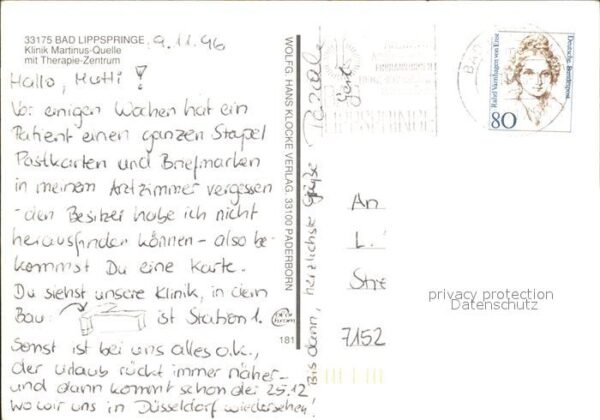 33175 BAD LIPPSPRINGE
Klinik Martinus-Quelle
mit Therapie-Zentrum
9.11.96
Hallo, Mutti!
Vor einigen Wochen hat ein
Patient einen ganzen Stapel
Postkarten und Briefmarken
in meinem Arztzimmer vergessen
- den Besitzer habe ich nicht
herausfinden können - also be-
kommst Du eine Karte.
Du siehst unsere Klinik, in dem
Bau: ist Station 1.
Sonst ist bei uns alles o.k.,
der Urlaub rückt immer näher -
und dann kommt schon der 25.12
wo wir uns in Düsseldorf wiedersehen!
Bis dann, herzlichste Grüße
WOLFG. HANS KLOCKE VERLAG, 33100 PADERBORN
181
LIPPSPRINGE
Deutsche Bundespost
Rahel Varnhagen von Ense
80
An
L.
Stre
7152
privacy protection
Datenschutz